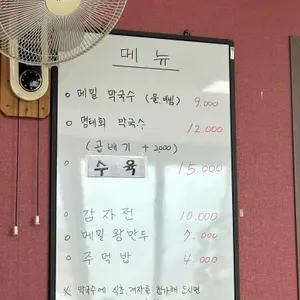 메뉴
o 메밀 막국수 (물.비빔) 9.000
o 명태회 막국수 12.000
(곱배기 +2,000)
o 수육 15.000
o 감자전 10.000
o 메밀 왕만두 7.000
o 주먹밥 4.000
※ 막국수에 식초.겨자를 전가해 드시면